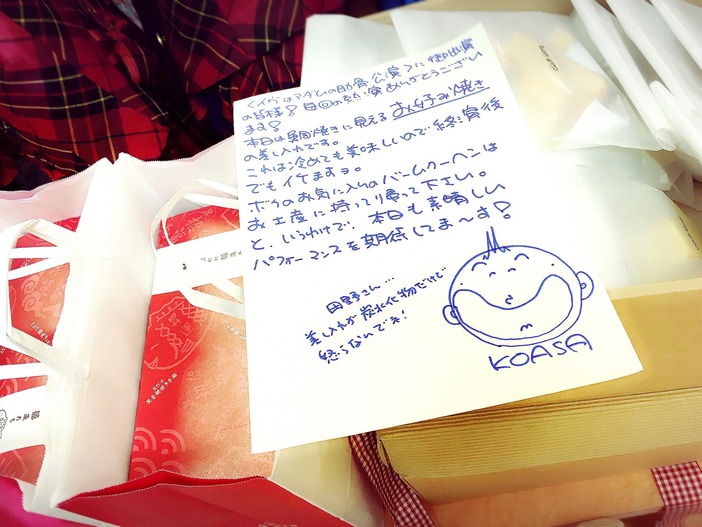 ＜イヴはアダムの肋骨公演＞に御出演
の皆様! 毎回の熱演ありがとうござい
ます!
本日は鯛焼きに見えるお好み焼き
の差し入れです。
これは冷めても美味しいので終演後
でもイケますョ。
ボクのお気に入りのバームクーヘンは
お土産に持って帰って下さい。
と、いうわけで、本日も素晴しい
パフォーマンスを期待してま〜す!
田野さん…
差し入れが炭水化物だけど
怒らないでネ!
KOASA